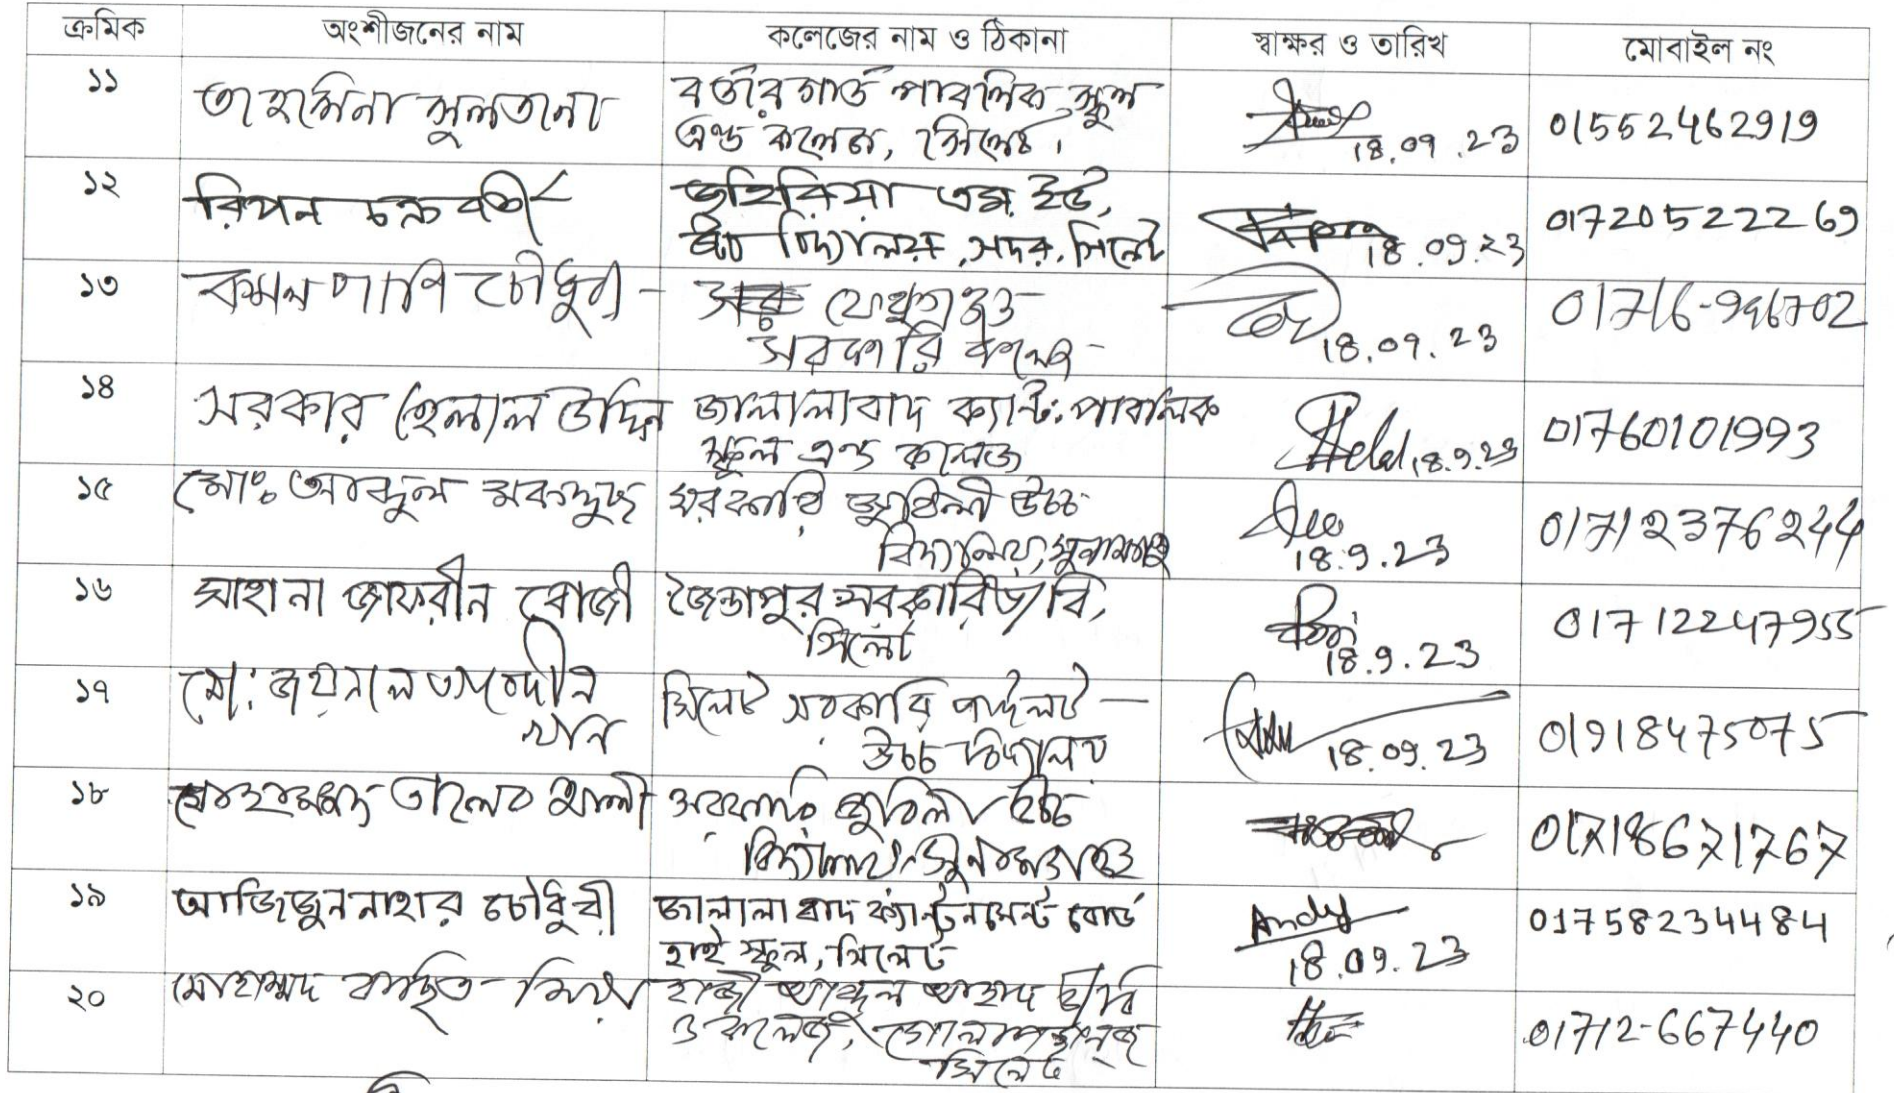 ক্রমিক অংশীজনের নাম কলেজের নাম ও ঠিকানা স্বাক্ষর ও তারিখ মোবাইল নং
১১ তাহমিনা সুলতানা বর্ডার গার্ড পাবলিক স্কুল
এন্ড কলেজ, সিলেট। 18.09.23 01552462919
১২ রিপন চক্রবর্তী জহিরিয়া এম. ইউ,
উচ্চ বিদ্যালয়, সদর, সিলেট 18.09.23 01720522269
১৩ কমল পাণি চৌধুরী -
সরকারি কলেজ - 18.09.23 01716-996702
১৪ সরকার হেলাল উদ্দিন জালালাবাদ ক্যান্ট: পাবলিক
স্কুল এন্ড কলেজ 18.9.23 01760101993
১৫ মোঃ আবদুল সরকারি জুবিলী উচ্চ
বিদ্যালয়, সুনামগঞ্জ 18.9.23 01712376244
১৬ সাহানা জাফরীন রোজী জৈন্তাপুর সরকারি উ/বি,
সিলেট 18.9.23 01712247955
১৭ মো: জয়নাল আবেদীন সিলেট সরকারি পাইলট —
খান উচ্চ বিদ্যালয় 18.09.23 01918475075
১৮ মোহাম্মদ তালেব আলী সরকারি জুবিলী উচ্চ
বিদ্যালয়, সুনামগঞ্জ 01718671767
১৯ আজিজুননাহার চৌধুরী জালালাবাদ ক্যান্টনমেন্ট বোর্ড
হাই স্কুল, সিলেট 18.09.23 01758234484
২০ মোহাম্মদ মিয়া হাজী আব্দুল আহাদ উ/বি
ও কলেজ, গোলাপগঞ্জ
সিলেট 01712-667440